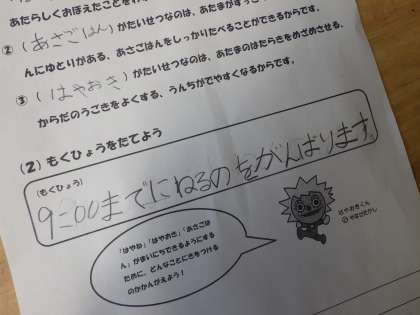 あたらしくおぼえたことを
② (あさごはん) がたいせつなのは、あたまがすっ
んにゆとりがある、あさごはんをしっかりたべることができるからです。
③ (はやおき) がたいせつなのは、あたまのはたらきをめざめさせる、
からだのうごきをよくする、うんちがでやすくなるからです。
(2) もくひょうをたてよう
(もくひょう)
9:00までにねるのをがんばります。
「はやね」「はやおき」「あさごは
ん」がまいにちできるようにする
ために、どんなことにきをつける
のかかんがえよう!
はやおきくん
©やなせたかし